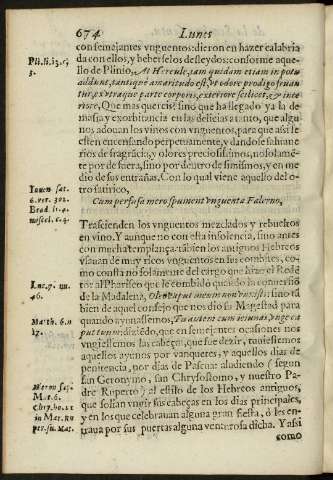 674 Lunes
con semejantes vnguentos: dieron en hazer calabria
da con ellos, y beberselos desleydos: conforme aque-
llo de Plinio, At Hercule, iam quidam etiam in potu
addunt, tantiq; amaritudo est, vt odore prodigo fruan
tur, ex vtraque parte corporis, exteriore scilicet, & inte
riore, Que mas querois? sino que ha llegado ya la de-
masia y exorbitancia en las delicias a tanto, que algu-
nos adouan los vinos con vnguentos, para que assi le
esten encensando perpetuamente, y dandose sahume
rios de fragrãcia, y olores preciosissimos, no solame-
te por de fuera, sino por dentro de si mismos, y en me
dio de sus entrañas. Con lo qual viene aquello del o-
tro satirico,
Cum perfusa mero spumant vnguenta Falerno,
Trascienden los vnguentos mezclados y rebueltos
en vino. Y aunque no con esta insolencia, sino antes
con mucha templança: tãbien los antiguos Hebreos
vsauan de muy ricos vnguentos en sus combites, co-
mo consta no solamente del cargo que hizo el Redẽ
tor al Phariseo que le combidò quando la conuersiõ
de la Madalena, Oleo caput meum non vnxisti: sino tã
bien de aquel consejo que nos dio su Magestad para
quando ayunassemos, Tu autem cum ieiunas, vnge ca
put tuum: diziẽdo, que en semejantes ocasiones nos
vngiessemos las cabeças, que fue dezir, tuuiessemos
aquellos ayunos por vanquetes, y aquellos dias de
penitencia, por dias de Pascua: aludiendo (segun
san Geronymo, san Chrysostomo, y nuestro Pa-
dre Ruperto) al estilo de los Hebreos antiguos,
que solian vngir sus cabeças en los dias principales,
y en los que celebrauan alguna gran fiesta, ò les en-
traua por sus puertas alguna venturosa dicha. Y assi
como
Pli. li. 13. c.
3.
Iuuen. sat.
6. ver. 302.
Luc. 7. nu.
46.
Math. 6. n
17.
Hieron. sup.
Mat. 6.
in Mat. Ru
per. sup. Mat.